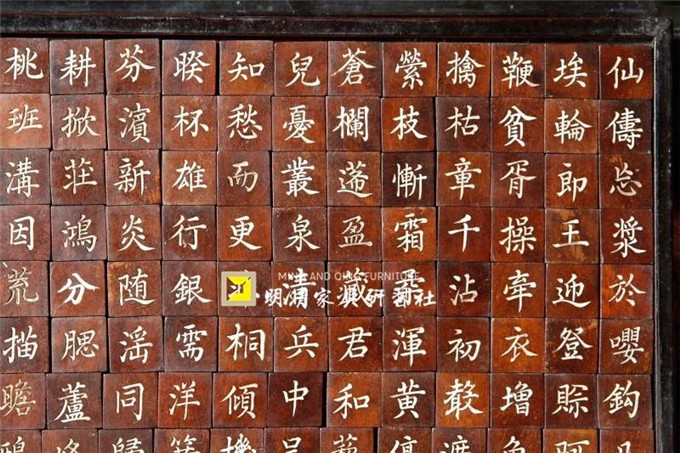 桃耕芬睽知兒蒼縈擒鞭埃仙
班掀濱杯愁憂欄枝枯貧輪儔
溝莊新雄而叢慚章胥即忘
因鴻炎行更泉盈霜千操王漿
荒分随銀清藏沾牽迎於
MING AND QING FURNITURE
明清家具研習社
描腮需桐兵君渾初衣登嚶
瞻蘆同洋傾中和黃增賒鈎